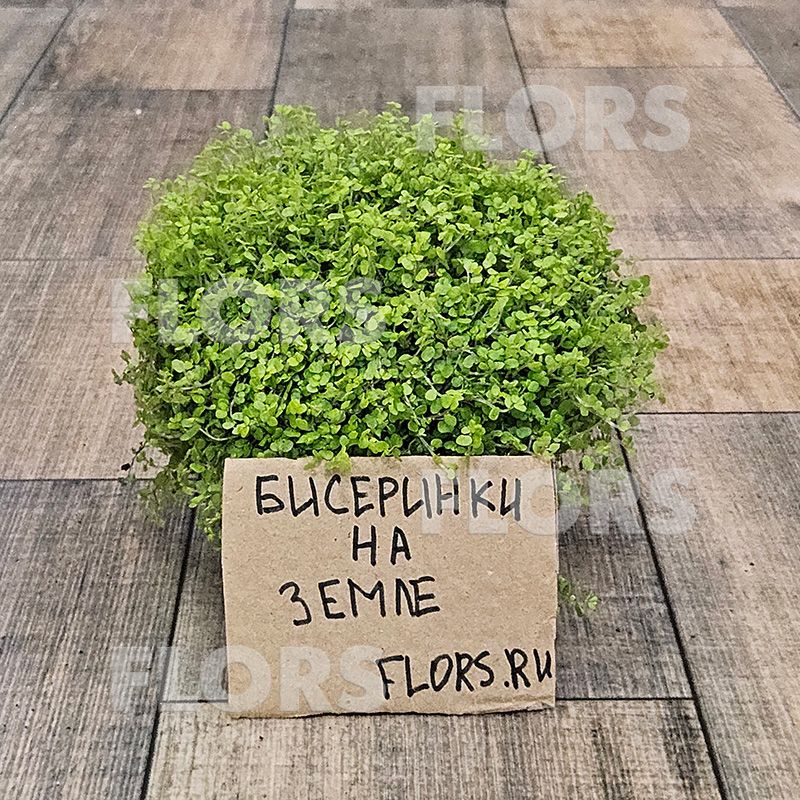 FLORS
FLORS
БИСЕРИНКИ
FLORS
НА
ЗЕМЛЕ
FLORS
FLORS.RU